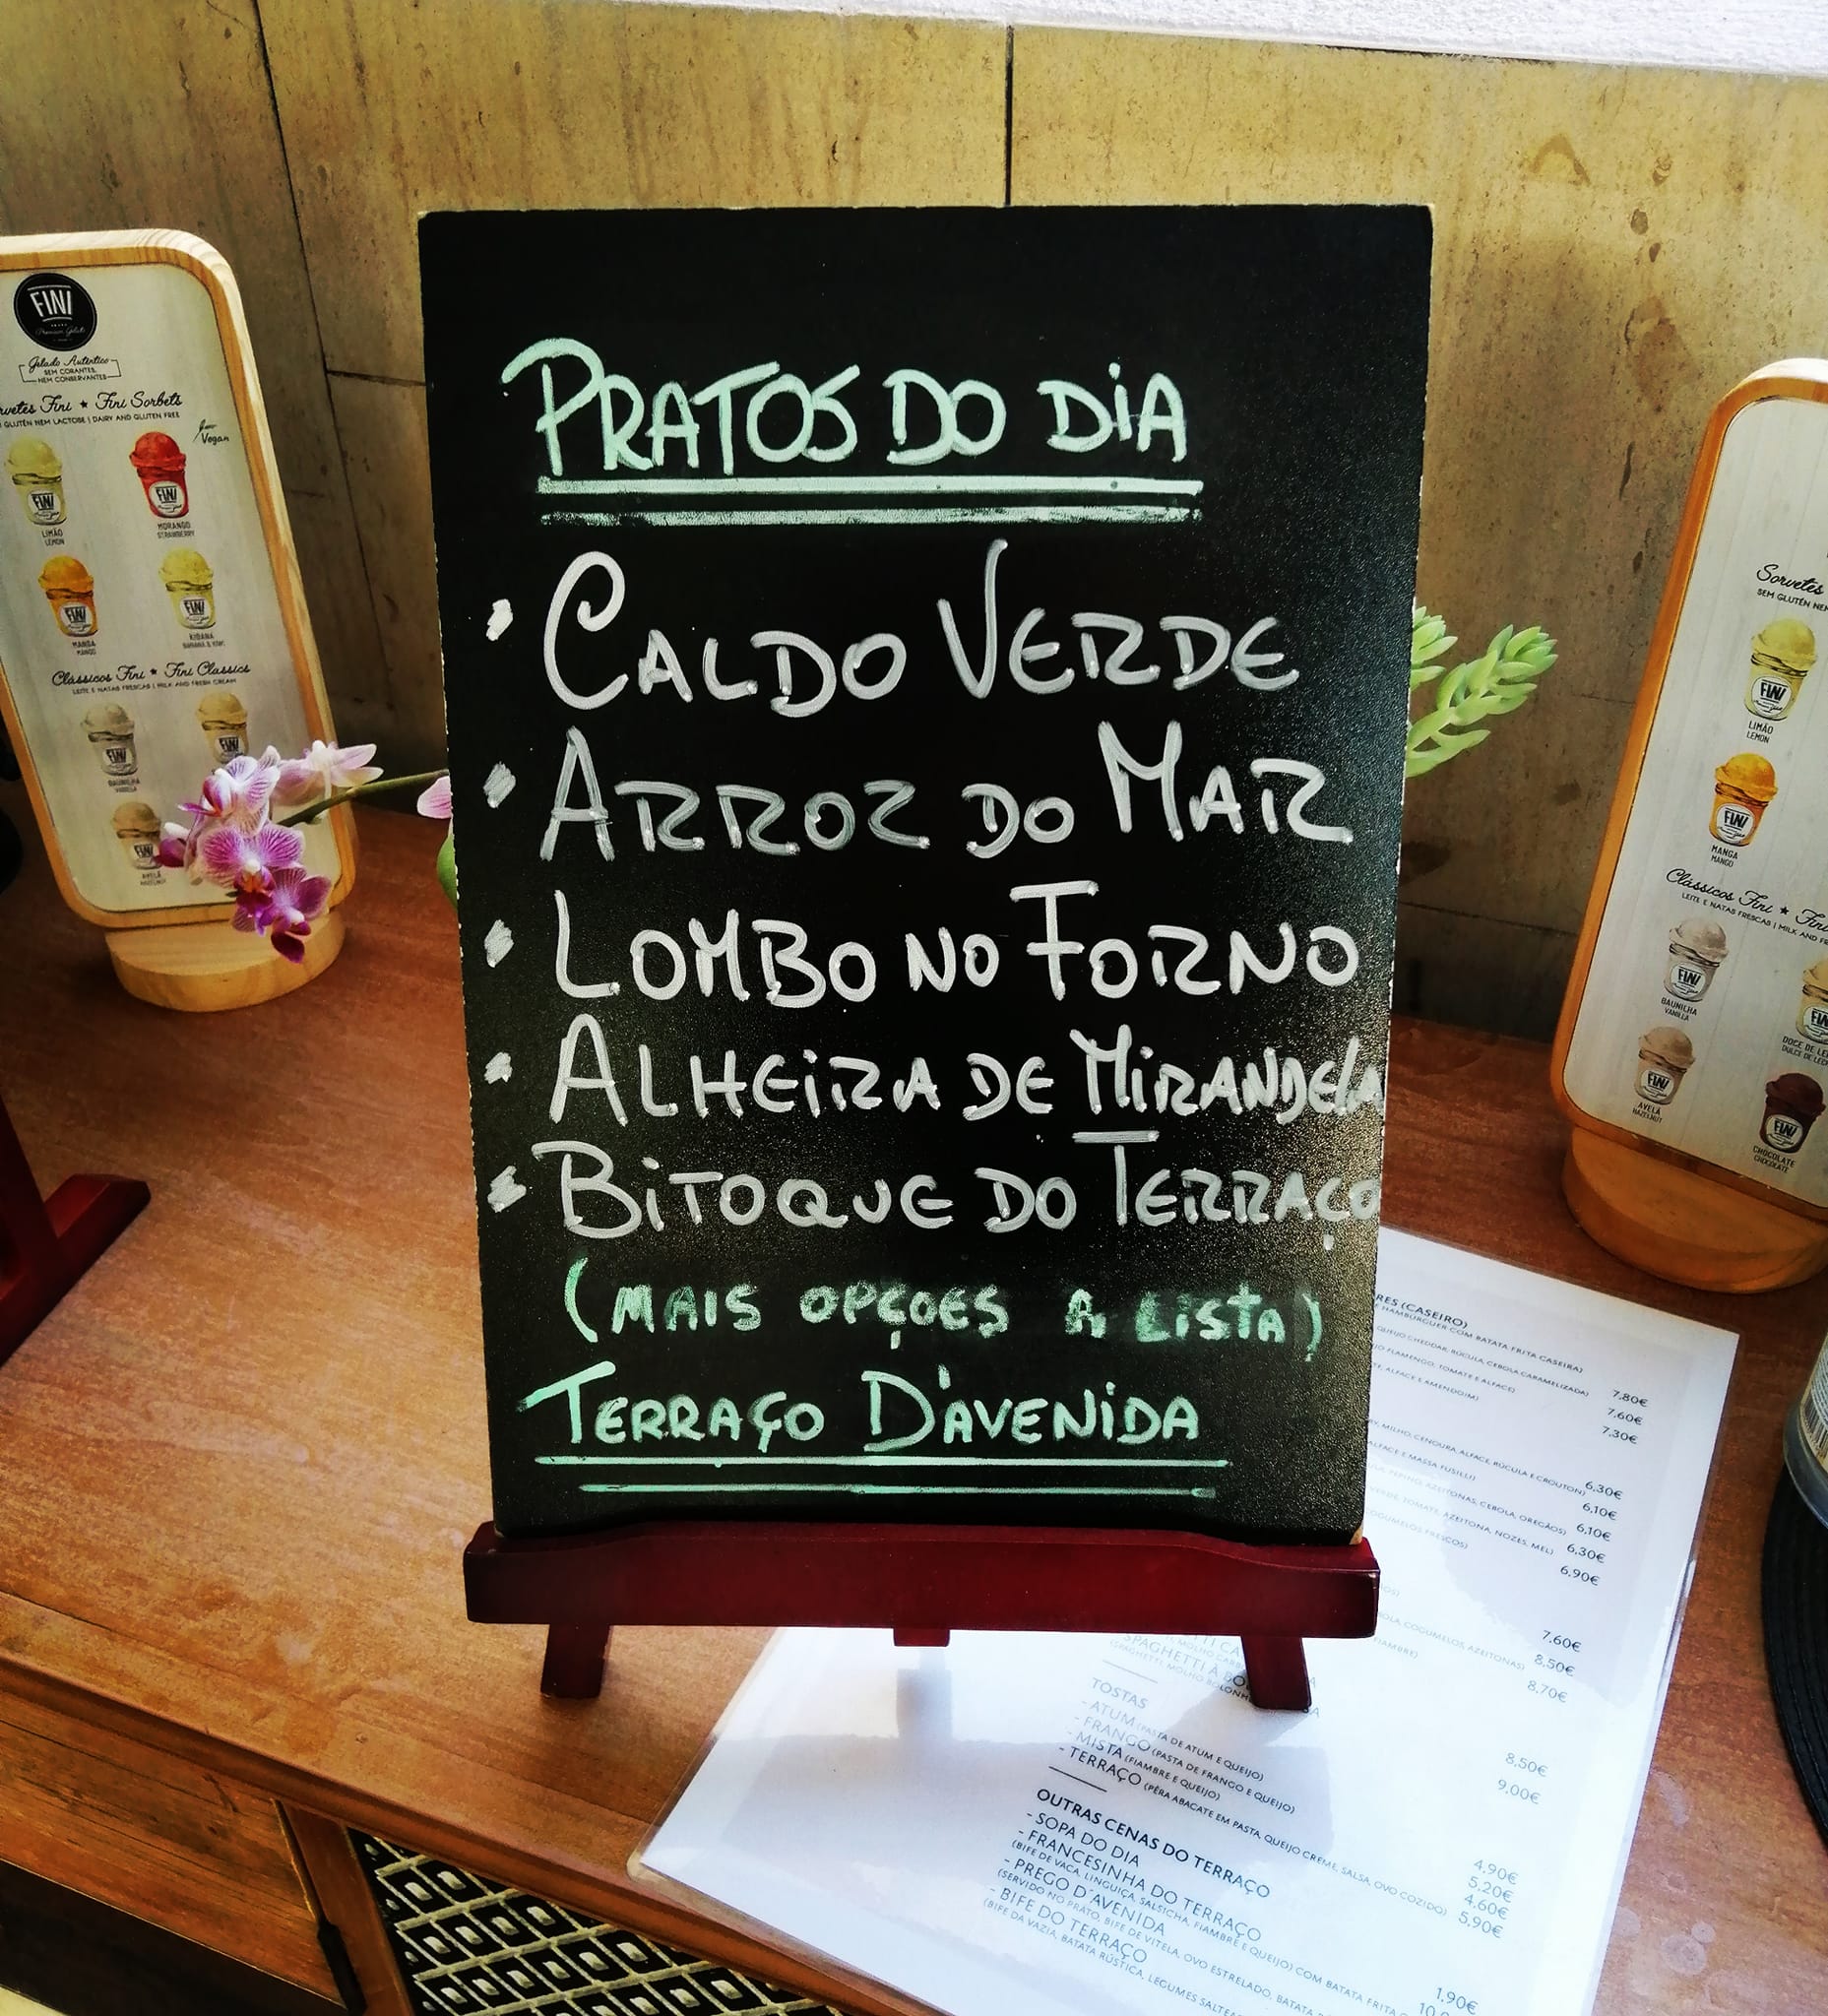 PRATOS DO DIA
CALDO VERDE
ARROZ DO MAR
LOMBO NO FORNO
ALHEIRA DE MIRANDELA
BITOQUE DO TERRAÇO
(MAIS OPÇOES A LISTA)
TERRAÇO D'AVENIDA
FINI
Premium Gelato
Gelado Autêntico
SEM CORANTES,
NEM CONSERVANTES
Fini ★ Fini Sorbets
GLUTÉN NEM LACTOSE | DAIRY AND GLUTEN FREE
Vegan
FINI
FINI
LIMÃO
LEMON
MORANGO
STRAWBERRY
FINI
FINI
MANGA
MANGO
KIBANA
BANANA & KIWI
Clássicos Fini ★ Fini Classics
LEITE E NATAS FRESCAS | MILK AND FRESH CREAM
FINI
FINI
BAUNILHA
VANILLA
FINI
AVELÃ
HAZELNUT
Sorvetes
SEM GLUTÉN NEM
FINI
LIMÃO
LEMON
FINI
MANGA
MANGO
Clássicos Fini ★
LEITE E NATAS FRESCAS | MILK AND
FINI
BAUNILHA
VANILLA
DOCE DE
DULCE DE
FINI
AVELÃ
HAZELNUT
FINI
CHOCOLATE
CHOCOLATE
(CASEIRO)
HAMBURGUER COM BATATA FRITA CASEIRA)
QUEIJO CHEDDAR, RÚCULA, CEBOLA CARAMELIZADA) 7,80€
FLAMENGO, TOMATE E ALFACE) 7,60€
ALFACE E AMENDOIM) 7,30€
MILHO, CENOURA, ALFACE, RÚCULA E CROUTON) 6,30€
ALFACE E MASSA FUSILLI) 6,10€
PEPINO, AZEITONAS, CEBOLA, OREGÃOS) 6,10€
TOMATE, AZEITONA, NOZES, MEL) 6,30€
FRESCOS) 6,90€
7,60€
COGUMELOS, AZEITONAS) 8,50€
FIAMBRE) 8,70€
8,50€
SPAGHETTI À 9,00€
(SPAGHETTI, MOLHO
TOSTAS
- ATUM (PASTA DE ATUM E QUEIJO) 4,90€
- FRANGO (PASTA DE FRANGO E QUEIJO) 5,20€
- MISTA (FIAMBRE E QUEIJO) 4,60€
- TERRAÇO (PÊRA ABACATE EM PASTA, QUEIJO CREME, SALSA, OVO COZIDO) 5,90€
OUTRAS CENAS DO TERRAÇO
- SOPA DO DIA 1,90€
- FRANCESINHA DO TERRAÇO
(BIFE DE VACA, LINGUIÇA, SALSICHA, FIAMBRE E QUEIJO) COM BATATA FRITA
- PREGO D'AVENIDA
(SERVIDO NO PRATO, BIFE DE VITELA, OVO ESTRELADO, BATATA
- BIFE DO TERRAÇO
(BIFE DA VAZIA, BATATA RÚSTICA, LEGUMES